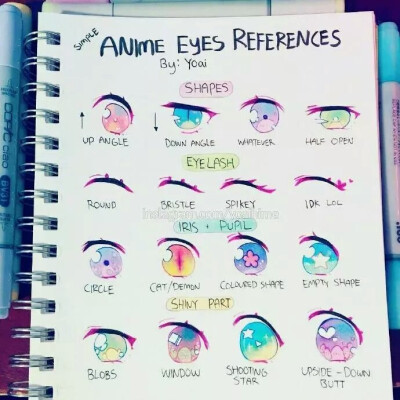 SIMPLE ANIME EYES REFERENCES
By: Yoai
SHAPES
UP ANGLE DOWN ANGLE WHATEVER HALF OPEN
EYELASH
ROUND BRISTLE SPIKEY IDK LOL
IRIS + PUPIL
CIRCLE CAT/DEMON COLOURED SHAPE EMPTY SHAPE
SHINY PART
BLOBS WINDOW SHOOTING STAR UPSIDE-DOWN BUTT
COPIC
ciao